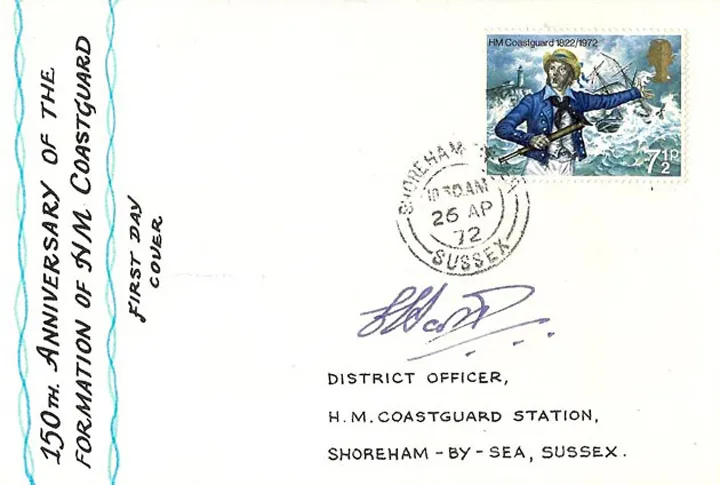 150TH. ANNIVERSARY OF THE
FORMATION OF H.M. COASTGUARD
FIRST DAY
COVER
HM Coastguard 1822/1972
7½P
SHOREHAM
10 30AM
26 AP
72
SUSSEX
DISTRICT OFFICER,
H.M. COASTGUARD STATION,
SHOREHAM - BY - SEA, SUSSEX.